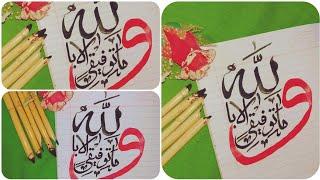 وما توفيقي إلا بالله
وما توفيقي إلا بالله
وما توفيقي إلا بالله